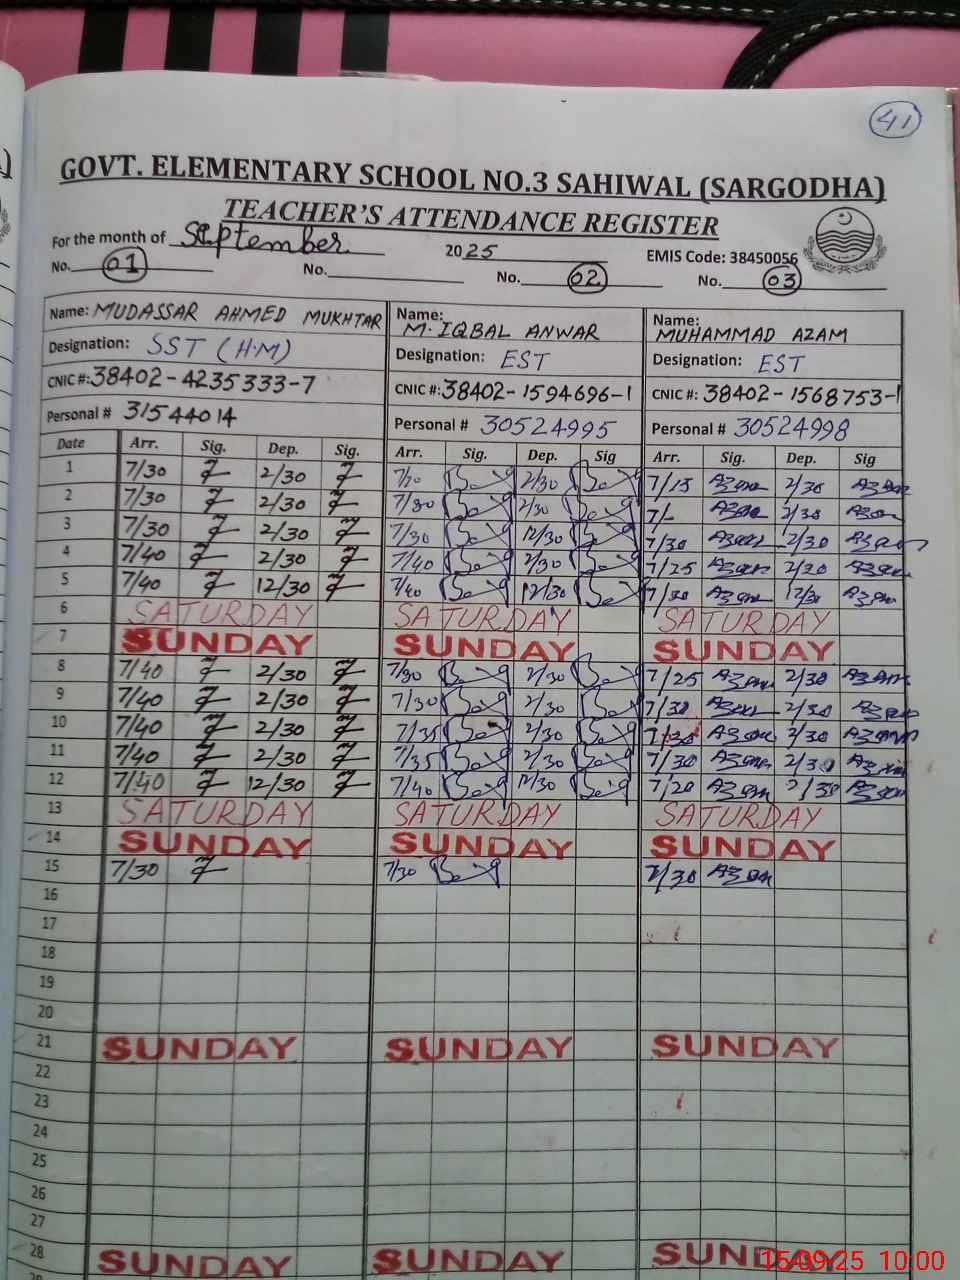 41
GOVT. ELEMENTARY SCHOOL NO.3 SAHIWAL (SARGODHA)
TEACHER'S ATTENDANCE REGISTER
For the month of September 2025 EMIS Code: 38450056
No. 01 No. No. 02 No. 03
Name: MUDASSAR AHMED MUKHTAR Name: M. IQBAL ANWAR Name: MUHAMMAD AZAM
Designation: SST (H.M) Designation: EST Designation: EST
CNIC #: 38402-4235333-7 CNIC #: 38402-1594696-1 CNIC #: 38402-1568753-1
Personal # 31544014 Personal # 30524995 Personal # 30524998
Date Arr. Sig. Dep. Sig. Arr. Sig. Dep. Sig Arr. Sig. Dep. Sig
1 7/30 2/30 2/30 7/15 Azam 2/30 Azam
2 7/30 2/30 7/30 2/30 7/- Azam 2/30 Azam
3 7/30 2/30 7/30 12/30 7/30 Azam 2/30 Azam
4 7/40 2/30 7/40 2/30 7/25 Azam Azam
5 7/40 12/30 7/40 12/30 Azam 12/30 Azam
6 SATURDAY SATURDAY SATURDAY
7 SUNDAY SUNDAY SUNDAY
8 7/40 2/30 7/30 2/30 7/25 Azam 2/30 Azam
9 7/40 2/30 7/30 2/30 7/30 Azam 2/30 Azam
10 7/40 2/30 7/35 2/30 Azam 2/30 Azam
11 7/40 2/30 7/35 2/30 7/30 Azam 2/30 Azam
12 7/40 12/30 7/40 12/30 7/20 Azam Azam
13 SATURDAY SATURDAY SATURDAY
14 SUNDAY SUNDAY SUNDAY
15 7/30 7/30 7/30 Azam
16
17
18
19
20
21 SUNDAY SUNDAY SUNDAY
22
23
24
25
26
27
28 SUNDAY SUNDAY SUNDAY
15-09-25 10:00